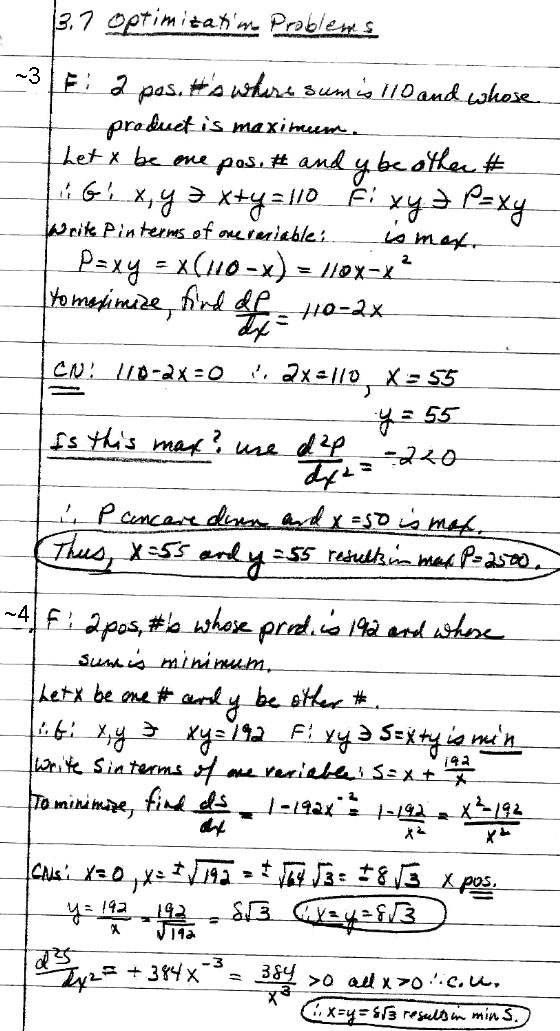 3.7 Optimization Problems
~3 F: 2 pos. #'s where sum is 110 and whose
product is maximum.
Let x be one pos. # and y be other #
∴ G: x, y ∋ x+y=110 F: xy ∋ P=xy
Write P in terms of one variable: is max.
P=xy = x(110-x) = 110x-x²
to maximize, find dP/dx = 110-2x
CN: 110-2x=0 ∴ 2x=110, x=55
y = 55
Is this max? use d²P/dx² = -2<0
∴ P concave down and x=50 is max.
Thus, x=55 and y=55 results in max P=2500.
~4 F: 2 pos, #'s whose prod. is 192 and whose
sum is minimum.
Let x be one # and y be other #.
∴ G: x, y ∋ xy=192 F: xy ∋ S=x+y is min
Write S in terms of one variable: S=x+192/x
To minimize, find ds/dx = 1-192x⁻² = 1-192/x² = x²-192/x²
CNs: x=0, x=±√192 = ±√64 √3 = ±8√3 x pos.
y = 192/x = 192/√192 = 8√3 ∴ x=y=8√3
d²S/dx² = +384x⁻³ = 384/x³ >0 all x>0 ∴ C.U.
∴ x=y=8√3 results in min S.